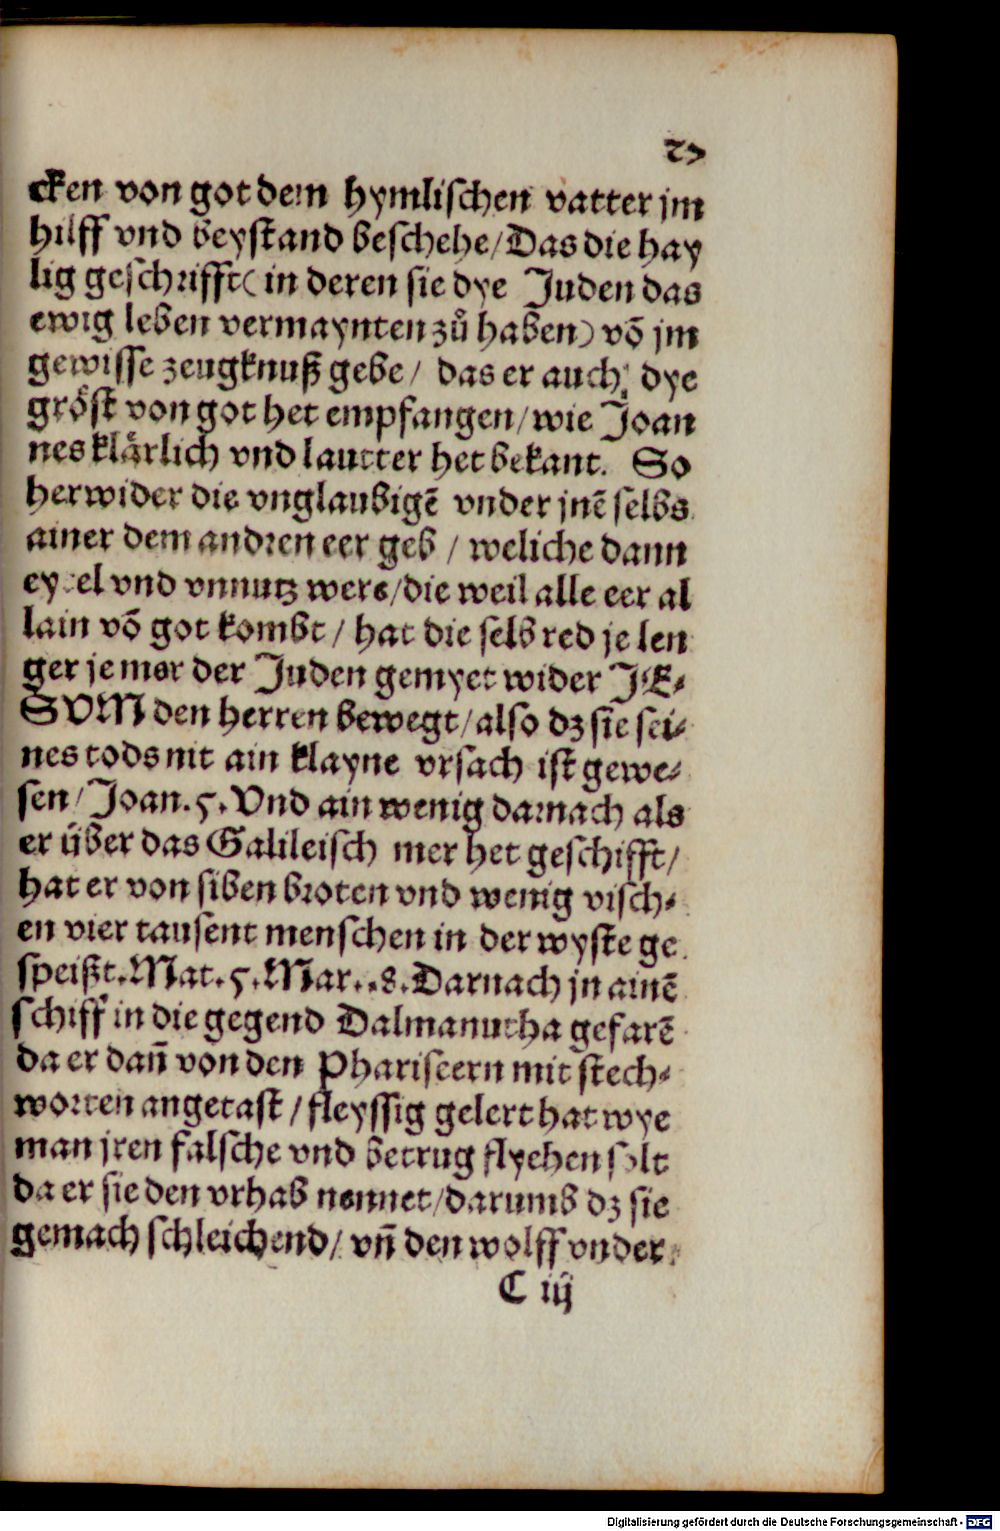 27
cken von got dem hymlischen vatter jm
hilff vnd beystand beschehe/Das die hay
lig geschrifft(in deren sie dye Juden das
ewig leben vermaynten zů haben) võ jm
gewisse zeugknuß gebe/ das er auch dye
gröst von got het empfangen/wie Joan
nes klärlich vnd lautter het bekant. So
herwider die vnglaubigẽ vnder jnẽ selbs
ainer dem andren eer geb / weliche dann
eytel vnd vnnutz were/die weil alle eer al
lain võ got kombt / hat die selb red je len
ger je mer der Juden gemyet wider JE⸗
SVM den herren bewegt/also dz sie sei⸗
nes tods nit ain klayne vrsach ist gewe⸗
sen/Joan.5.Vnd ain wenig darnach als
er über das Galileisch mer het geschifft/
hat er von siben broten vnd wenig visch⸗
en vier tausent menschen in der wyste ge
speißt.Mat.5.Mar..8.Darnach jn ainẽ
schiff in die gegend Dalmanutha gefarẽ
da er dañ von den Phariseern mit stech⸗
worten angetast / fleyssig gelert hat wye
man jren falsche vnd betrug flyehen solt
da er sie den vrhab nennet/darumb dz sie
gemach schleichend/ vñ den wolff vnder
C iij
Digitalisierung gefördert durch die Deutsche Forschungsgemeinschaft - DFG